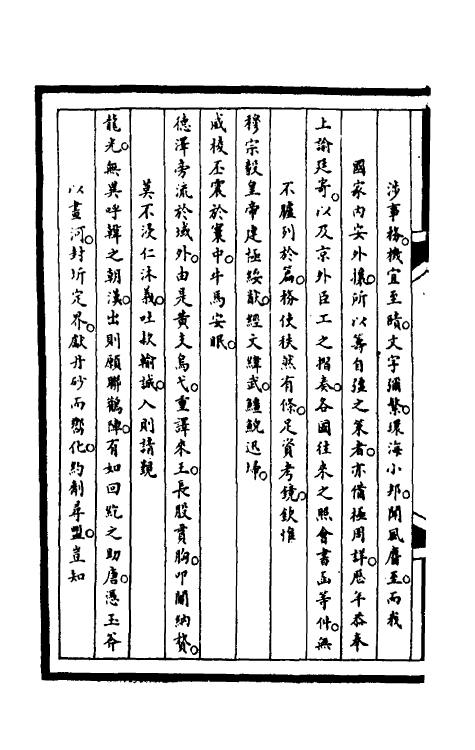 涉事務。機宜至賾。文字彌繁。環海小邦。聞風麕至。而我
國家內安外攘。所以籌自強之策者。亦備極周詳。歷年恭奉
上諭廷寄。以及京外臣工之摺奏。各國往來之照會書函等件。無
不臚列於篇。務使秩然有條。足資考鏡。欽惟
穆宗毅皇帝建極綏猷。經文緯武。鱷鯢迅掃。
威棱丕震於寰中。牛馬安眠。
德澤旁流於域外。由是黃支烏弋。重譯來王。長股貫胸。叩關納贄。
莫不浸仁沐義。吐款輸誠。入則請覲
龍光。無異呼韓之朝漢。出則願聯鸛陣。有如回紇之助唐。憑玉斧
以畫河。封圻定界。獻丹砂而嚮化。約劑尋盟。豈知